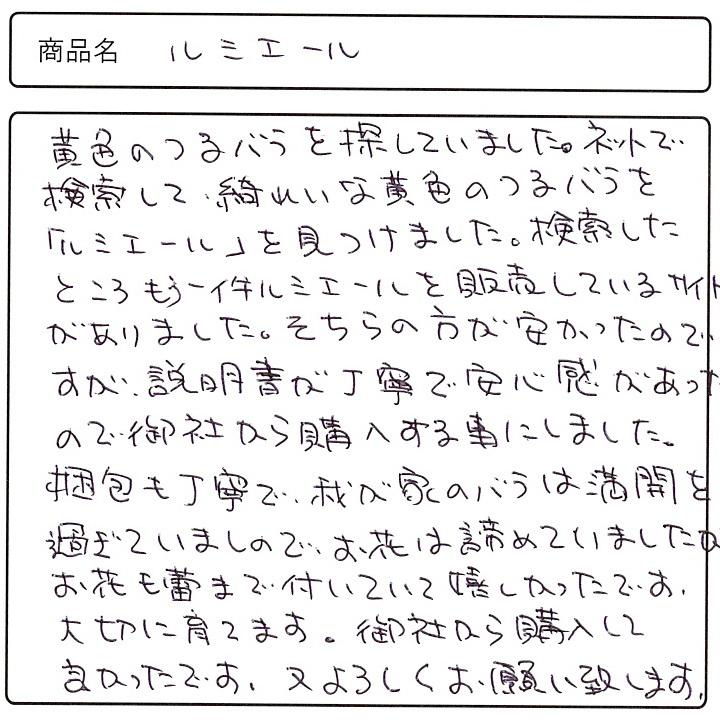 商品名 ルミエール
黄色のつるバラを探していました。ネットで
検索して、綺れいな黄色のつるバラを
「ルミエール」を見つけました。検索した
ところもう一件ルミエールを販売しているサイト
がありました。そちらの方が安かったので
すが、説明書が丁寧で安心感があった
ので御社から購入する事にしました。
梱包も丁寧で、我が家のバラは満開を
過ぎていましので、お花は諦めていましたが
お花も蕾まで付いていて嬉しかったです。
大切に育てます。御社から購入して
良かったです。又よろしくお願い致します。